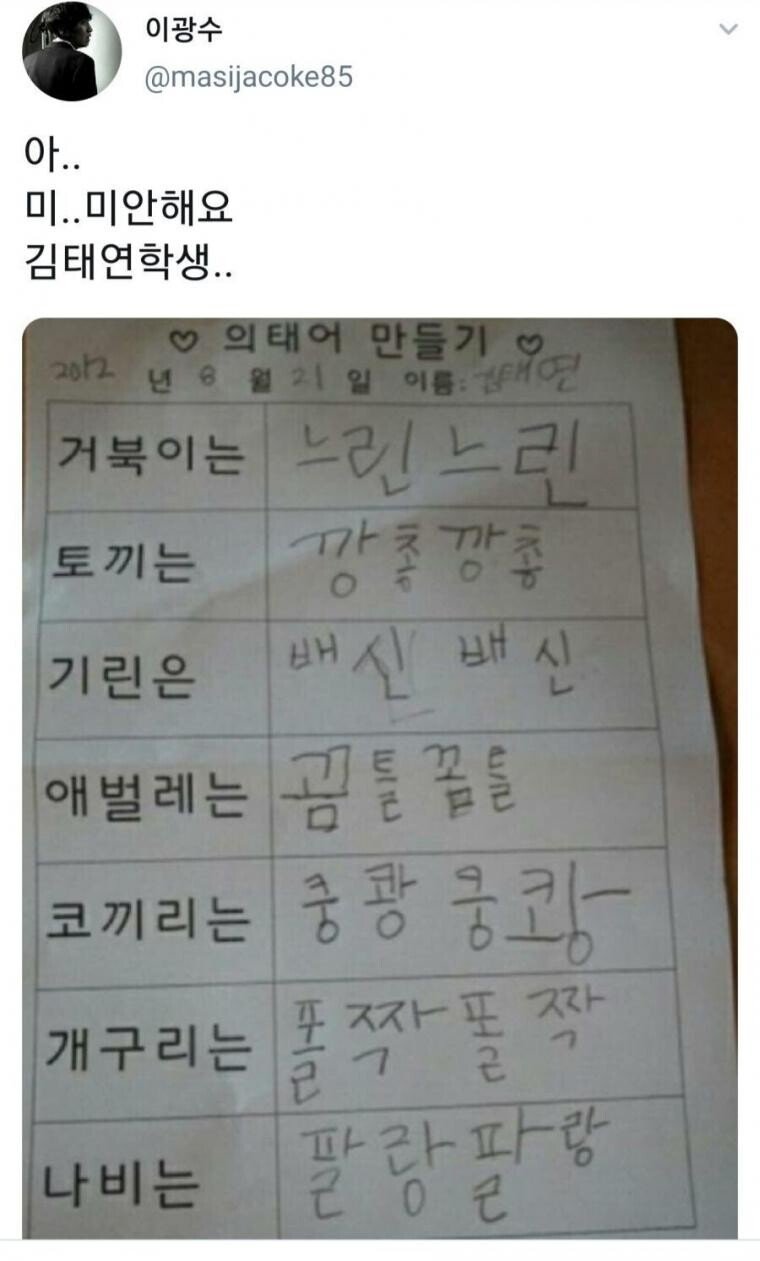 이광수
@masijacoke85
아..
미..미안해요
김태연학생..
♡ 의태어 만들기 ♡
2012 년 8 월 21 일 이름: 김태연
거북이는 느린느린
토끼는 깡총깡총
기린은 배신 배신
애벌레는 꿈틀꿈틀
코끼리는 쿵쾅쿵쾅
개구리는 폴짝폴짝
나비는 팔랑팔랑